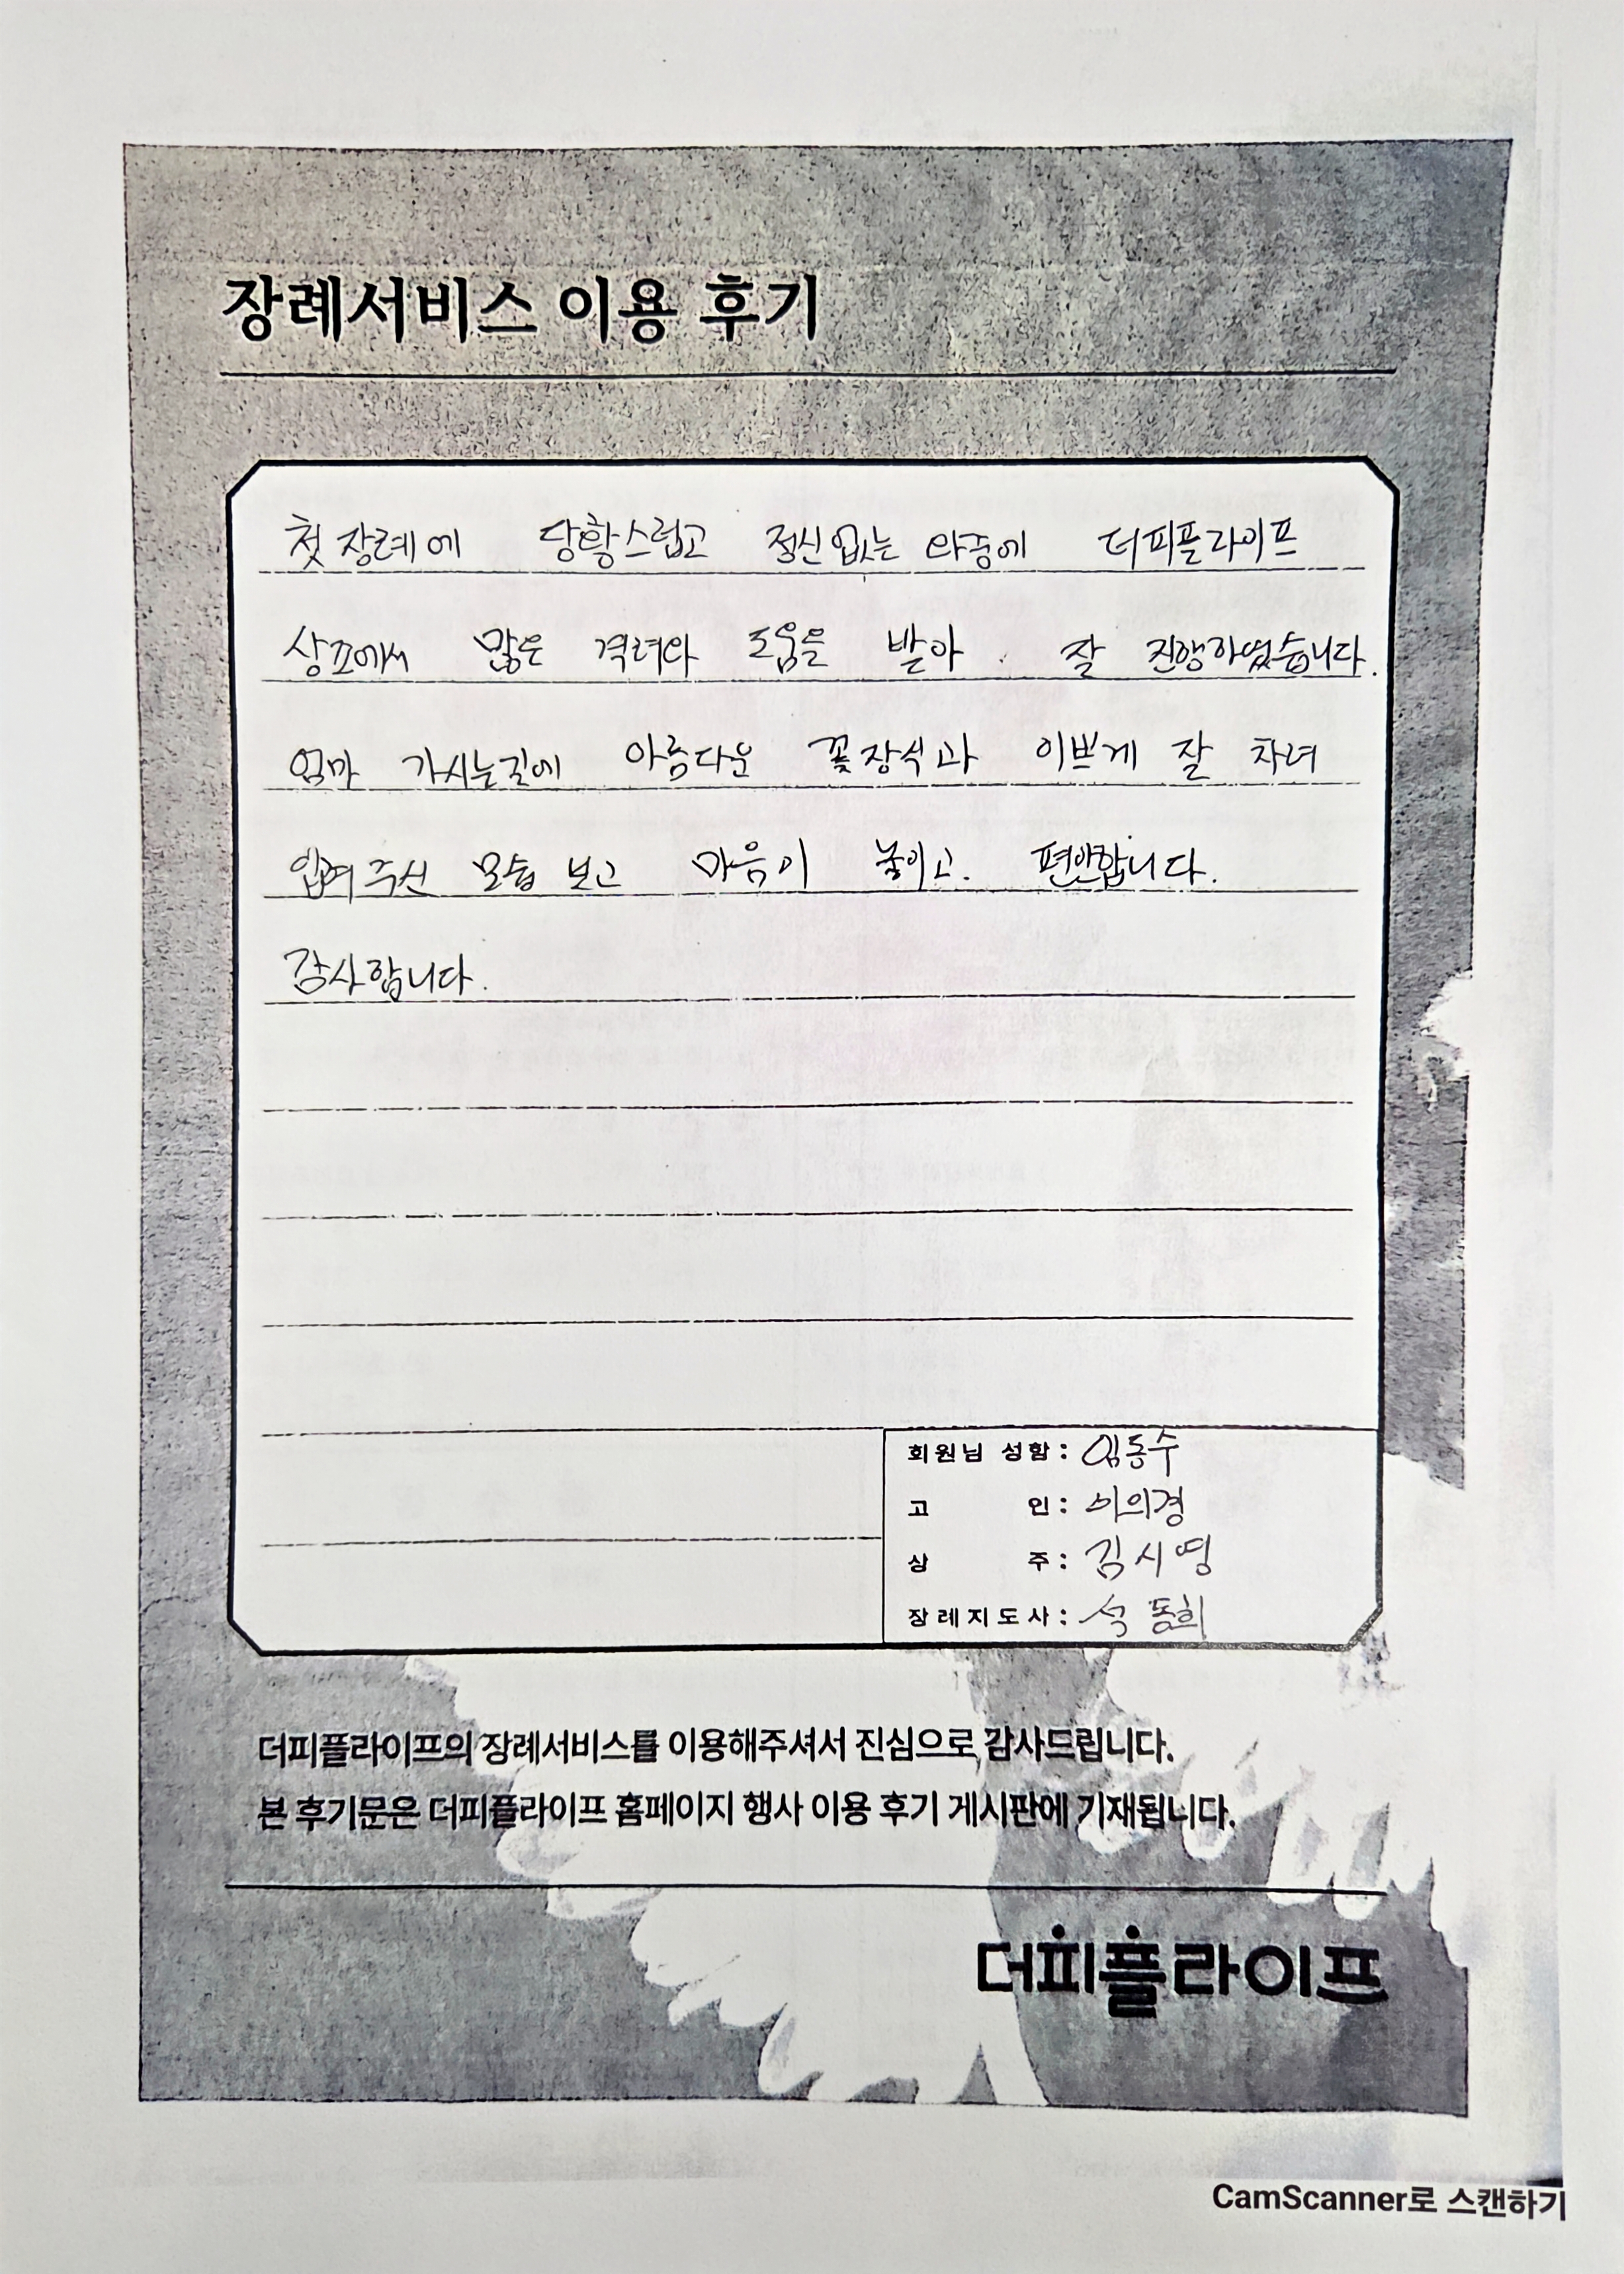 장례서비스 이용 후기
첫 장례에 당황스럽고 정신없는 와중에 더피플라이프
상조에서 많은 격려와 도움을 받아 잘 진행하였습니다.
엄마 가시는길에 아름다운 꽃장식과 이쁘게 잘 차려
입혀주신 모습 보고 마음이 놓이고. 편안합니다.
감사합니다.
회원님 성함 : 임동수
고 인 : 이의경
상 주 : 김시영
장례지도사 : 석동희
더피플라이프의 장례서비스를 이용해주셔서 진심으로 감사드립니다.
본 후기문은 더피플라이프 홈페이지 행사 이용 후기 게시판에 기재됩니다.
더피플라이프
CamScanner로 스캔하기